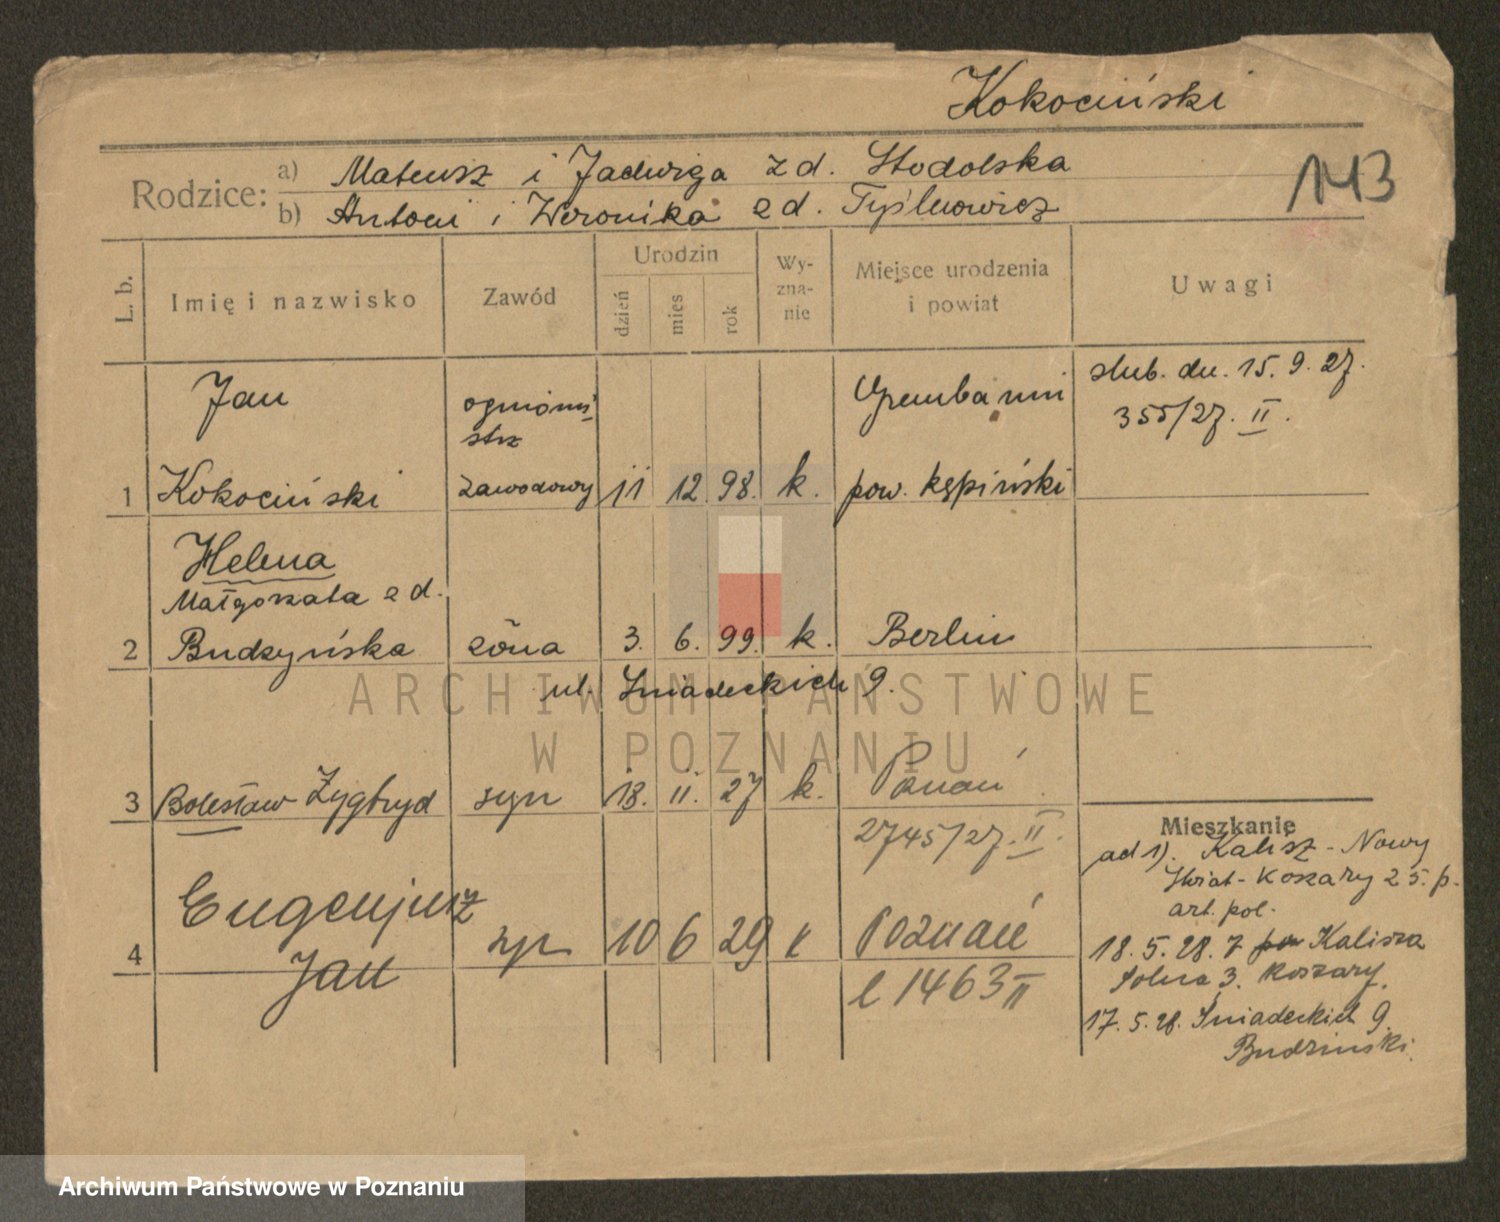 Kokociński
Rodzice: a) Mateusz i Jadwiga z d. Stodolska
b) Antoni i Weronika z d. Tyślewicz
143
L. b.
Imię i nazwisko
Zawód
Urodzin
dzień
mies
rok
Wy-
zna-
nie
Miejsce urodzenia
i powiat
Uwagi
Jan
ogniomi
strz
ślub. dn. 15. 9. 27.
355/27. II.
1 Kokociński zawodowy 11 12. 98. k. pow. kępiński
Helena
Małgorzata z d.
2 Budzyńska żona 3. 6. 99. k. Berlin
ul. Śniadeckich 9.
3 Bolesław Zygfryd syn 18. 11. 27 k. Poznań
2745/27. II.
Mieszkanie
ad 1). Kalisz - Nowy
Świat - Koszary 25. p.
art. pol.
Eugenjusz
4 Jan syn 10 6 29 k Poznań
l 1463 II
18. 5. 28. z Kalisza
Polna 3. Koszary.
17. 5. 28. Śniadeckich 9.
Budziński.
ARCHIWUM PAŃSTWOWE
W POZNANIU
Archiwum Państwowe w Poznaniu